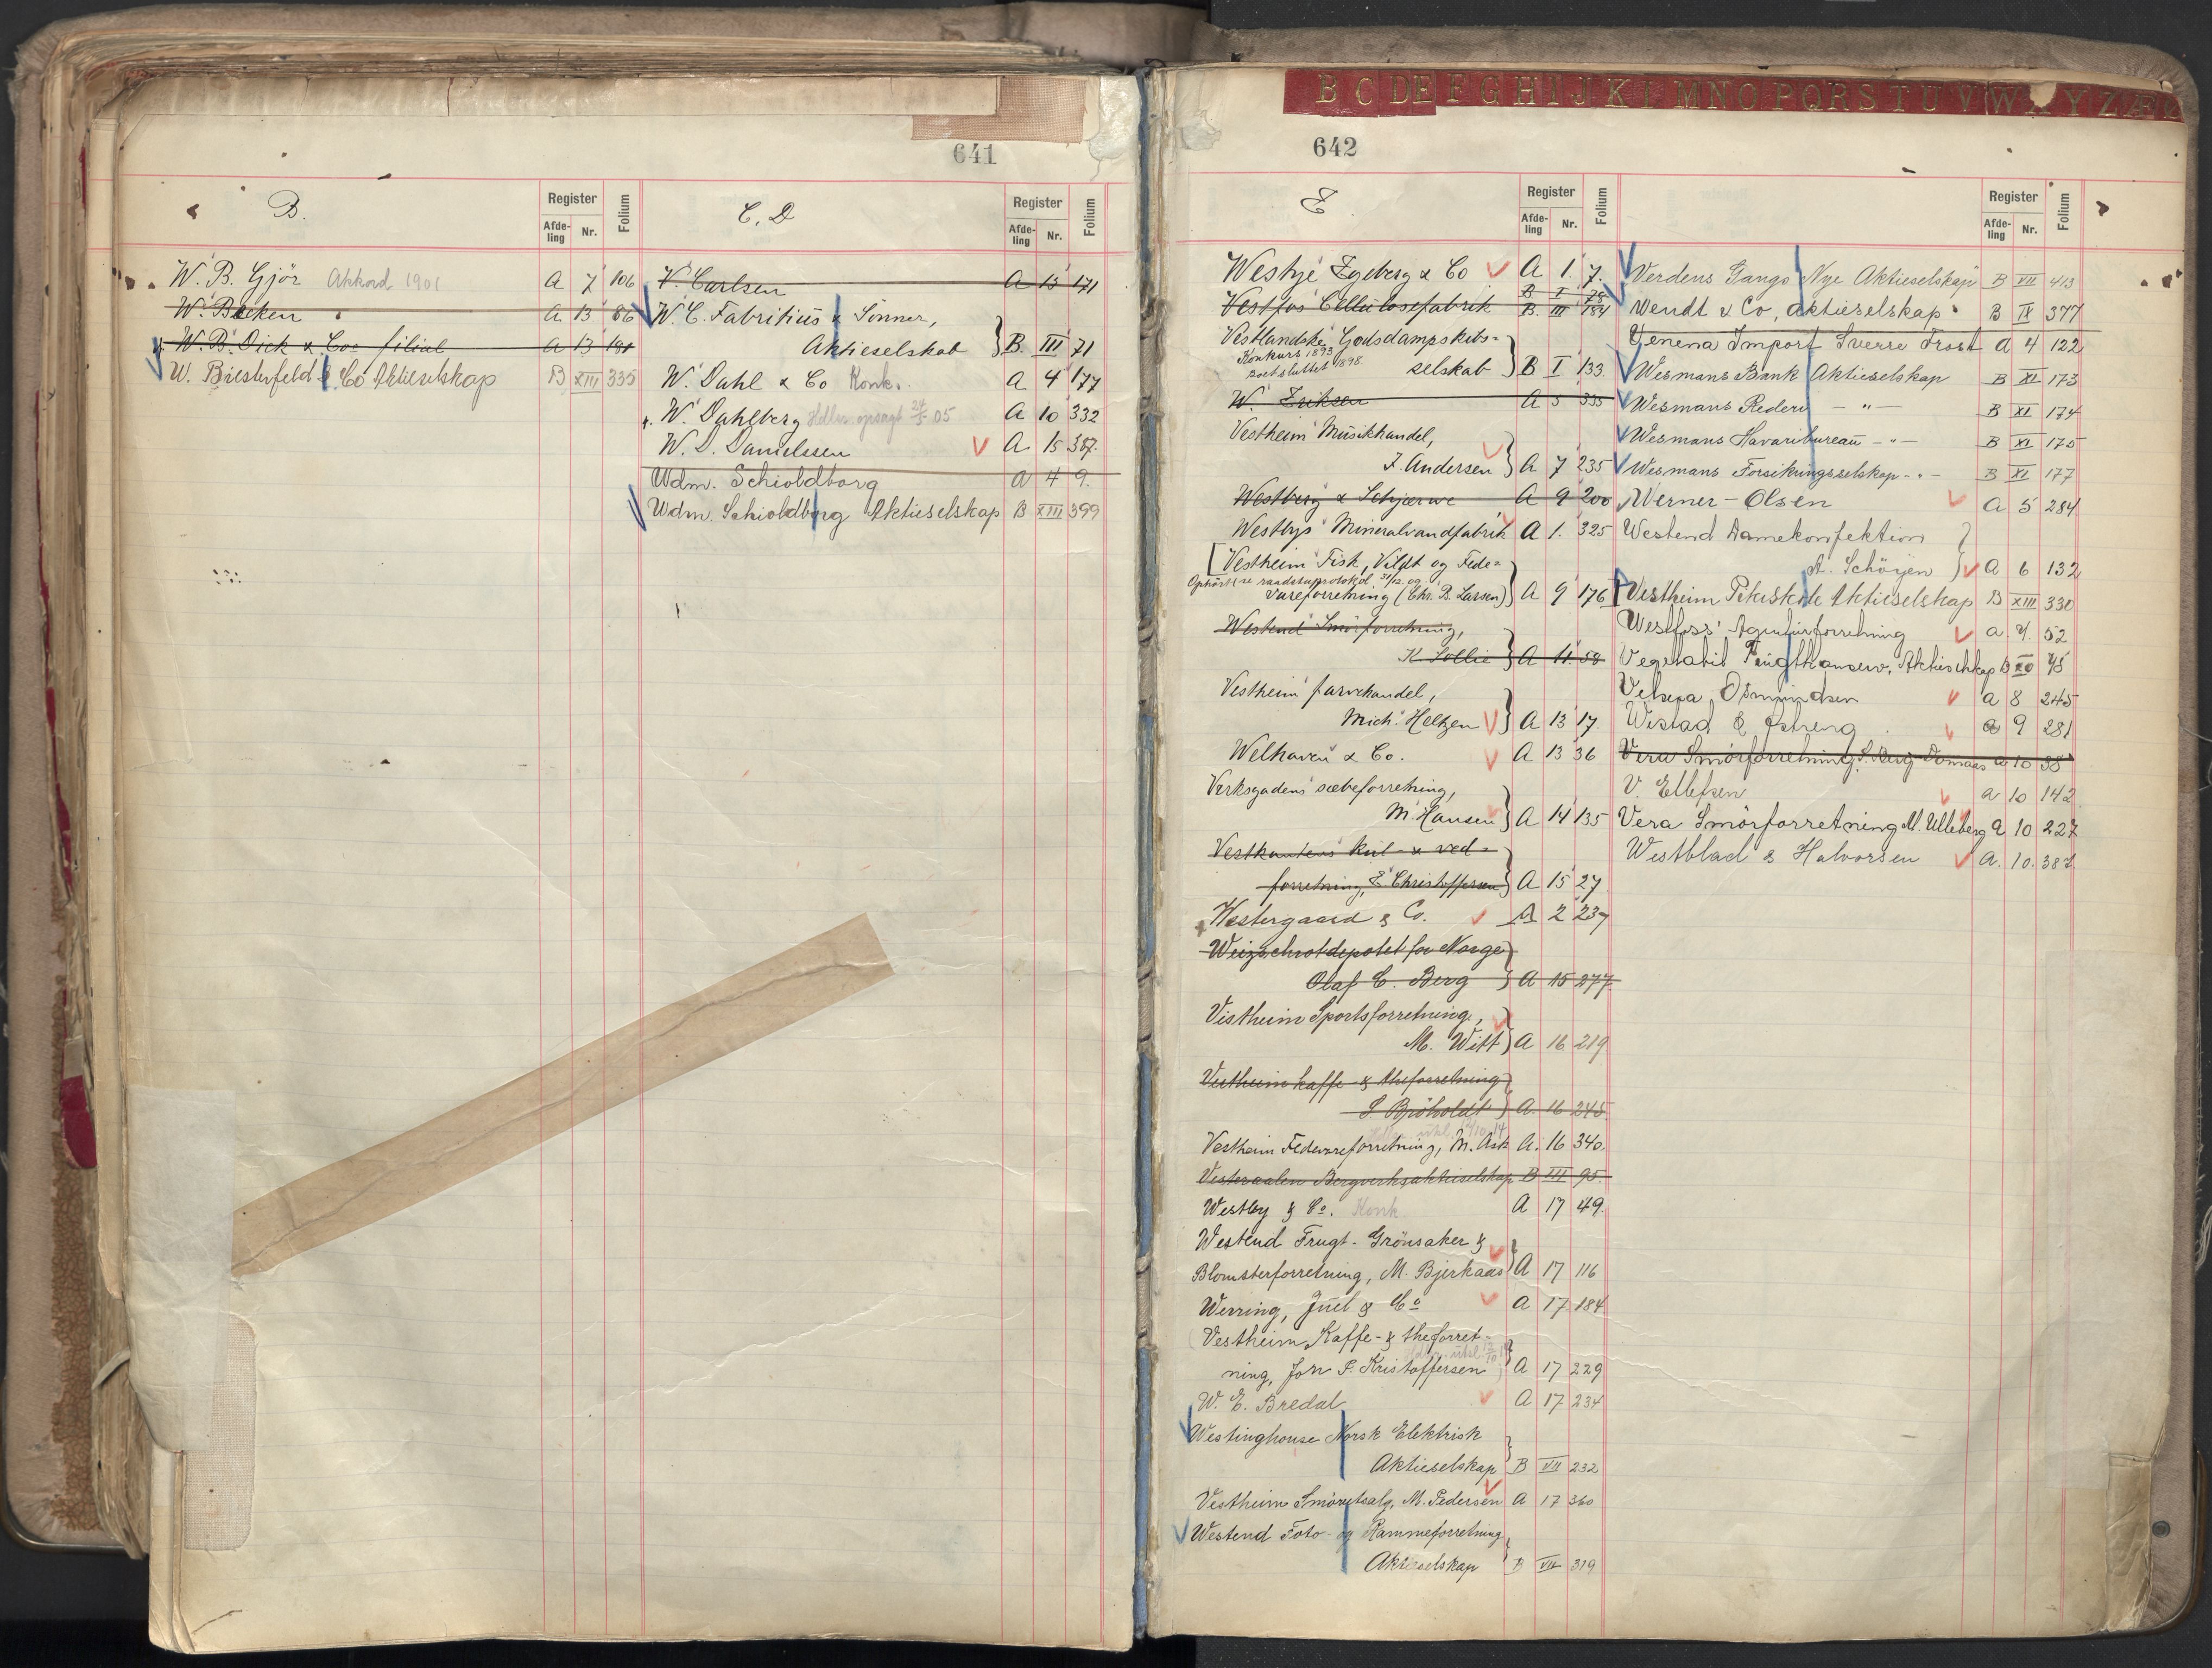 641
B.
Register
Afde-ling Nr. Folium
W. B. Gjör Akkord 1901 A 7 106
W. Backen A 13 86
W. B. Dick & Co filial A 13 191
W. Biesterfeld & Co Aktieselskap B XIII 335
C, D
Register
Afde-ling Nr. Folium
W. Carlsen A 13 171
W. C. Fabritius & Sönner,
Aktieselskab B. III 71
W. Dahl & Co Konk. A 4 177
W. Dahlberg 05 A 10 332
W. D. Danielssen A 15 387.
Wdm. Schioldborg A 4 9.
Wdm. Schioldborg Aktieselskap B XIII 399
B C D E F G H I J K L M N O P Q R S T U V W X Y Z Æ
642
E
Register
Afde-ling Nr. Folium
Westye Egeberg & Co A 1. 7.
B I 78
Vestfos Cellulosefabrik B. III 184
Vestlandske Godsdampskibs=
Konkurs 1893
Boet sluttet 1898.
selskab B I 133
W. Eriksen A 5 335
Vestheim Musikhandel,
J. Andersen A 7 235
Westberg & Schjerwe A 9 200
Westbys Mineralvandfabrik A 1. 325
Vestheim Fisk, Vildt og Fede=
vareforretning (Chr. B. Larsen) A 9 176
Westend Smörforretning,
K. Sollie A 11. 58
Vestheim farvehandel,
Mich. Heltzen A 13 17
Welhaven & Co. A 13 36
Verksgadens sæbeforretning,
M. Hansen A 14 135
Vestkantens kul- & ved=
forretning, E. Christoffersen A 15 27
Westergaard & Co. A 2 237
Weizschrotdepotet for Norge
Olaf C. Berg A 15 277
Vestheim Sportsforretning,
M. Witt A 16 219
Vestheim kaffe & theforretning
A. 16 245
Vestheim Fedevareforretning, M. Ask A. 16 340.
Vesteraalen Bergverksaktieselskap B III 95
Westby & Co. Konk A 17 49.
Westend Frugt- Grönsaker &
Blomsterforretning, M. Bjerkaas A 17 116
Werring, Juel & Co A 17 184
Vestheim Kaffe- & theforret-
ning, Joh S. Kristoffersen A 17 229
W. E. Bredal A 17 234
Westinghouse Norsk Elektrisk
Aktieselskap B VII 232
Vestheim Smörutsalg, M. Pedersen A 17 360
Westend Foto- og Rammeforretning
Aktieselskap B VII 319
Register
Afde-ling Nr. Folium
Verdens Gangs Nye Aktieselskap B VII 413
Wendt & Co, Aktieselskap B IX 377
Venena Import Sverre Frost A 4 122
Wesmans Bank Aktieselskap B XI 173
Wesmans Rederi - " - B XI 174
Wesmans Havaribureau - " - B XI 175
Wesmans Forsikringsselskap - " - B XI 177
Werner-Olsen A 5 284
Westend Damekonfektion
A. Schöyen A 6 132
Vestheim Pikeskole Aktieselskap B XIII 330
Westfoss' Agenturforretning A 7. 52
Vegetabil Aktieselskap B 75
Velsepa Osmundsen A 8 245
Wistad & Østreng A 9 281
Vera Smörforretning, S. Berg A 10 38
V. Ellefsen A 10 142
Vera Smörforretning M. Ulleberg A 10 227
Westblad & Halvorsen A. 10. 387